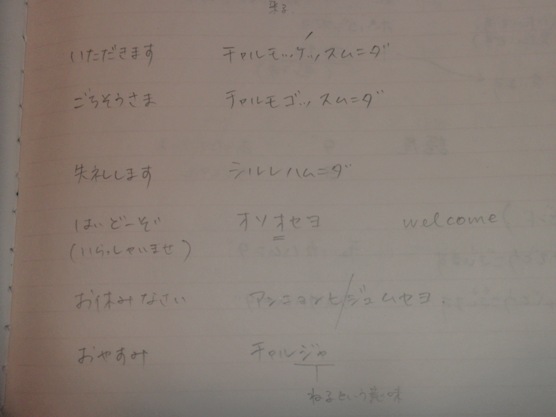 いただきます チャルモッケッスムニダ
ごちそうさま チャルモゴッスムニダ
失礼します シルレハムニダ
はいどーぞ オソオセヨ welcome)
(いらっしゃいませ)
お休みなさい アンニョンヒ/ジュムセヨ
おやすみ チャルジャ
ねるという意味